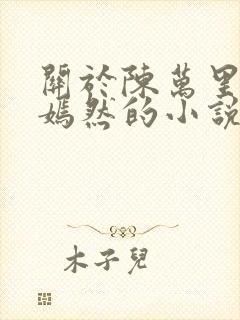 關於陳萬里
嫣然的小說
木子兒